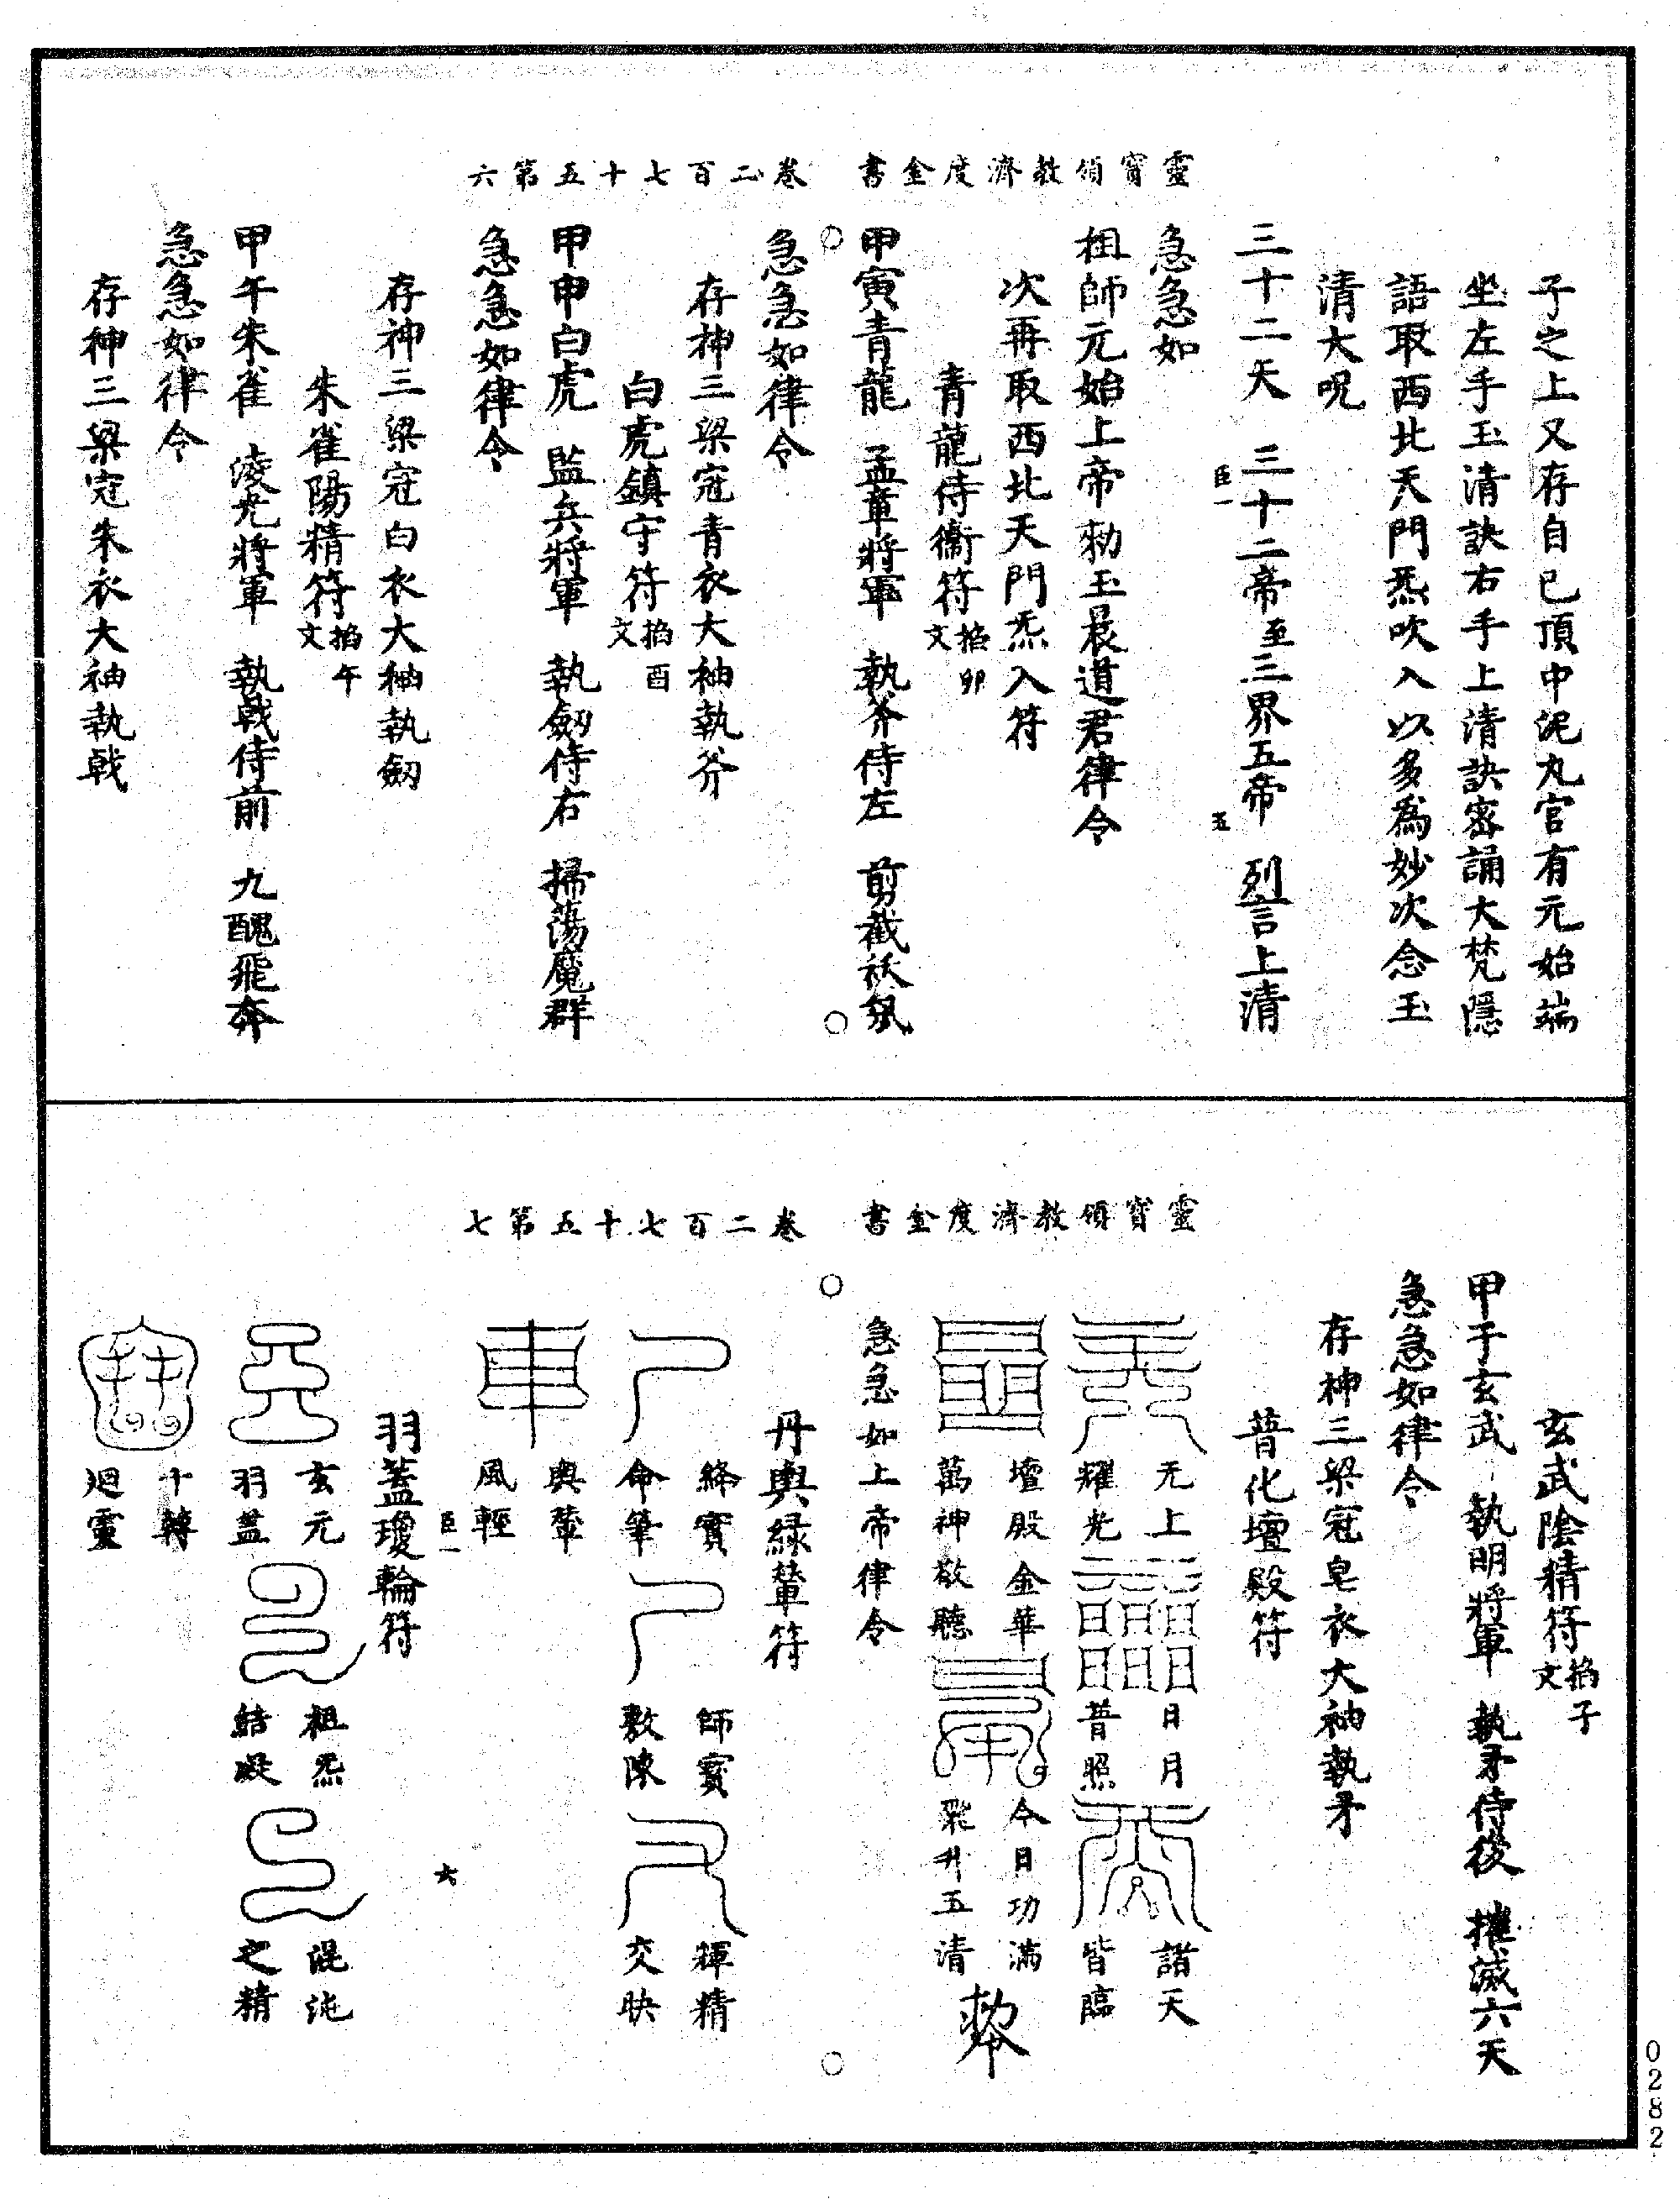 靈寶領教濟度金書　卷二百七十五第六
子之上又存自己頂中泥丸宮有元始端
坐左手玉清訣右手上清訣密誦大梵隱
語取西北天門炁吹入以多爲妙次念玉
清大呪
三十二天　三十二帝至三界五帝　列言上清
臣一　五
急急如
祖師元始上帝勑玉晨道君律令
次再取西北天門炁入符
青龍侍衞符掐卯文
甲寅青龍　孟章將軍　執斧侍左　剪截祅氛
急急如律令
存神三梁冠青衣大袖執斧
白虎鎮守符掐酉文
甲申白虎　監兵將軍　執劒侍右　掃蕩魔群
急急如律令
存神三梁冠白衣大袖執劒
朱雀陽精符掐午文
甲午朱雀　凌光將軍　執戟侍前　九醜飛奔
急急如律令
存神三梁冠朱衣大袖執戟
靈寶領教濟度金書　卷二百七十五第七
玄武陰精符掐子文
甲子玄武　執明將軍　執矛侍後　摧滅六天
急急如律令
存神三梁冠皂衣大袖執矛
普化壇殿符
无上耀光　日月普照　諸天皆臨
壇殿金華　萬神敬聽　今日功滿　飛升五清　勑
急急如上帝律令
丹輿綠輦符
絳寶命筆　師寶敷陳　輝精交映
輿輦風輕
臣一　六
羽蓋瓊輪符
玄元羽蓋　祖炁結凝　混沌之精
十轉迴靈
0282